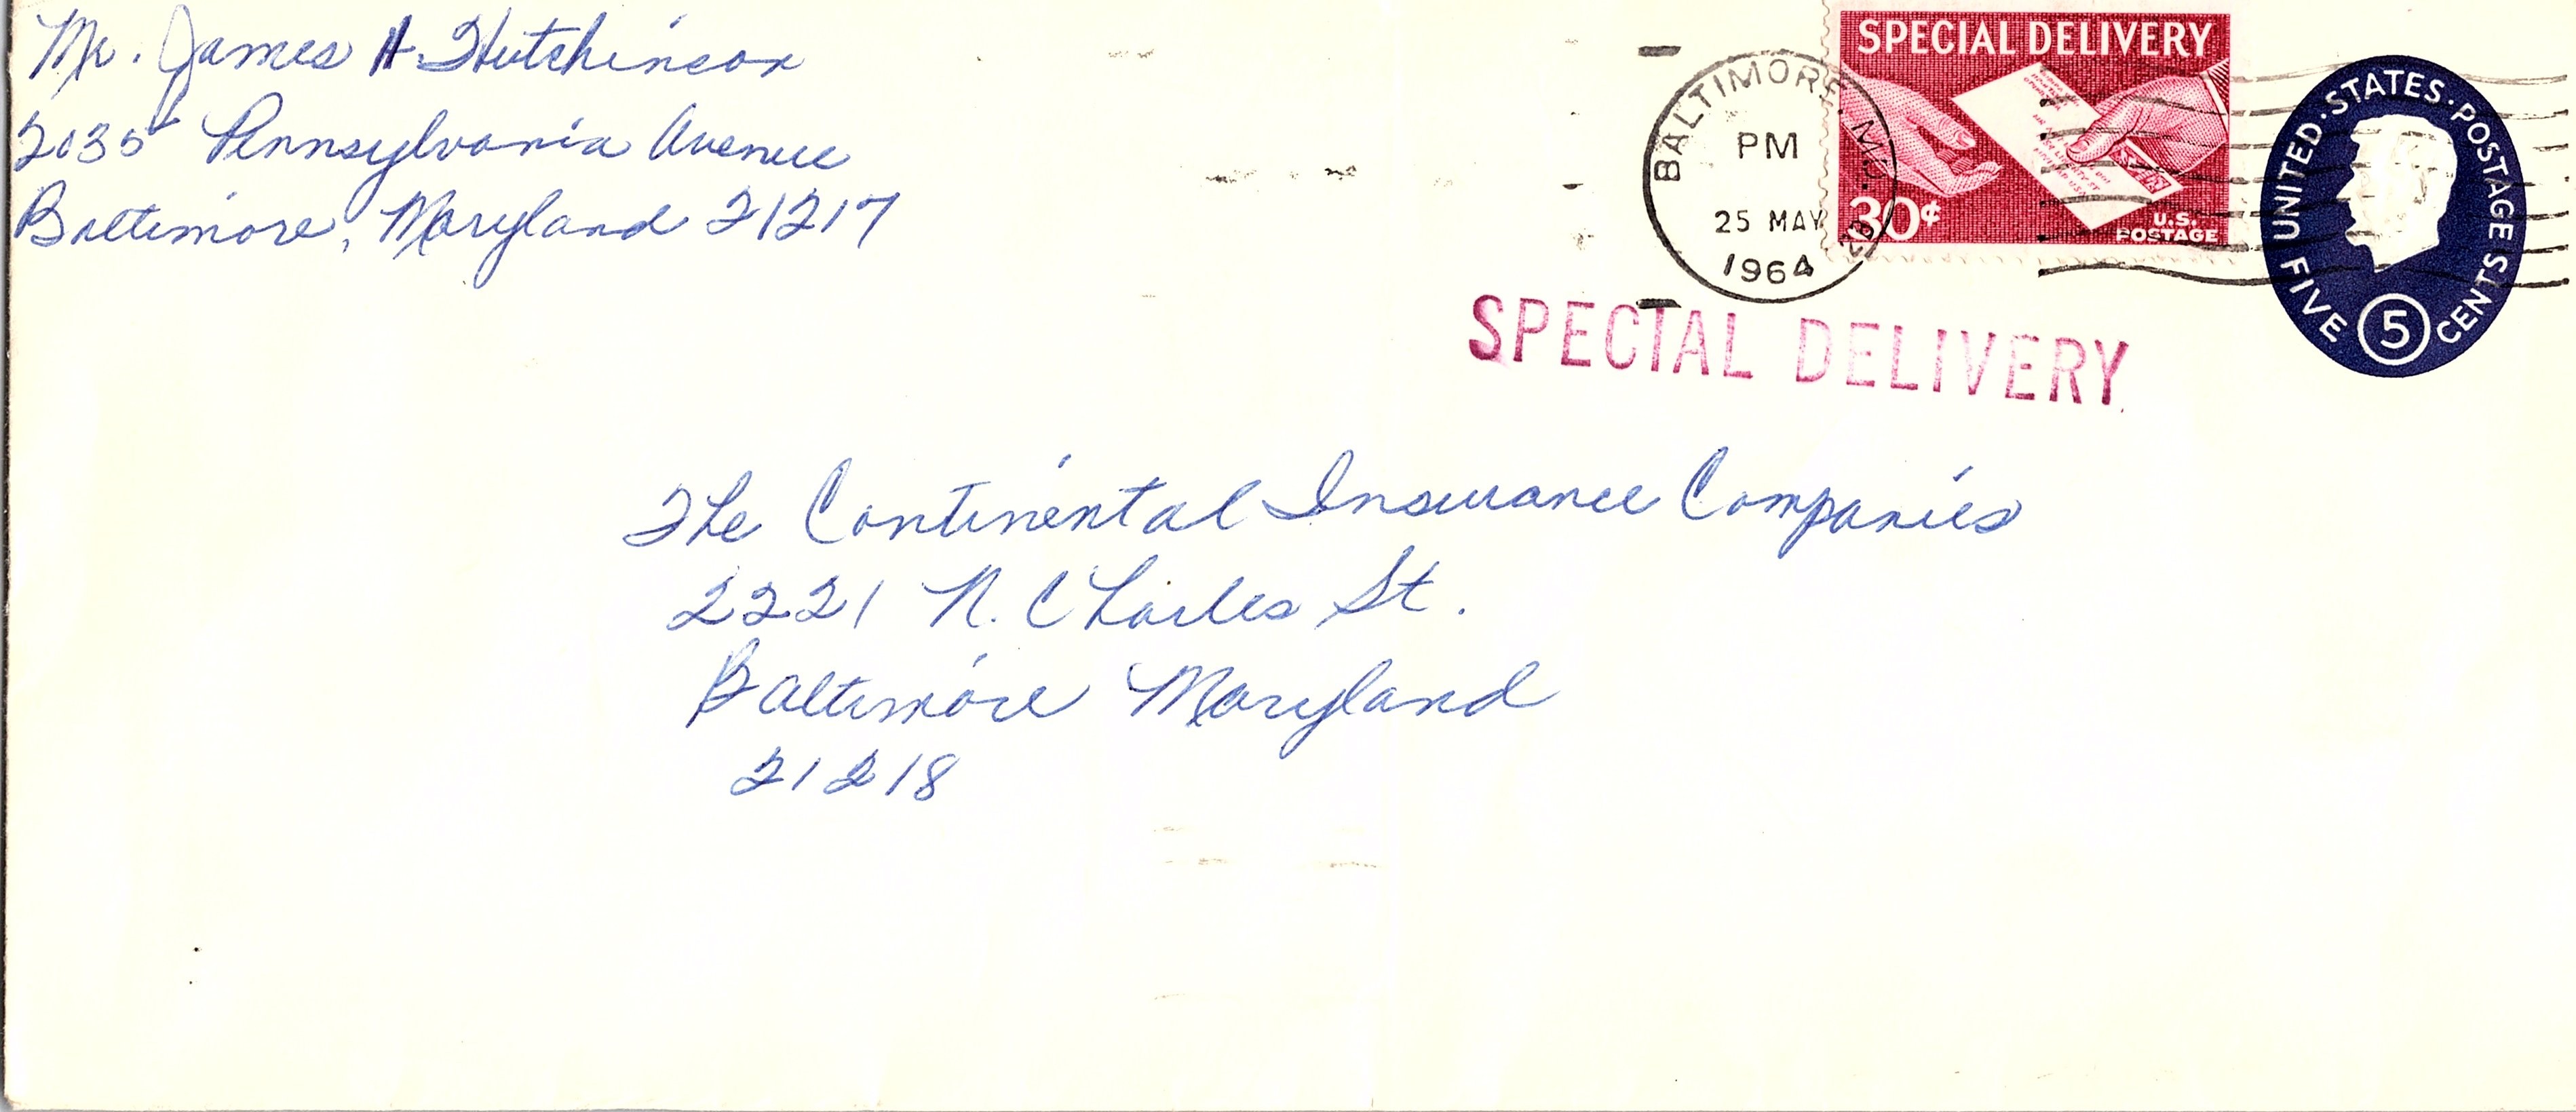 Mr. James H Hutchinson
2035 Pennsylvania Avenue
Baltimore, Maryland 21217
BALTIMORE, MD.
PM
25 MAY
1964
SPECIAL DELIVERY
30¢
U.S.
POSTAGE
UNITED·STATES·POSTAGE
FIVE 5 CENTS
SPECIAL DELIVERY
The Continental Insurance Companies
2221 N. Charles St.
Baltimore Maryland
21218